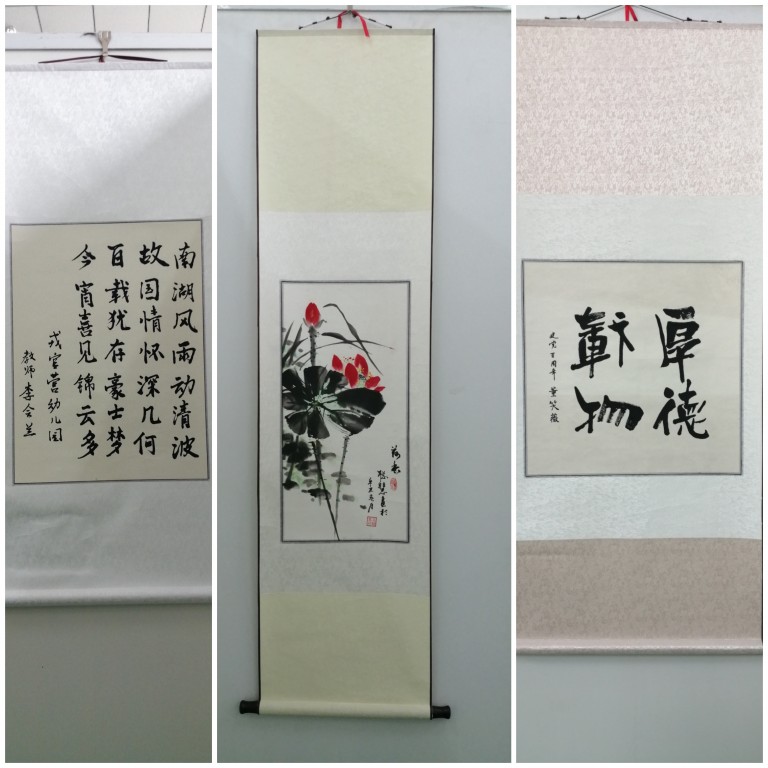 南湖风雨动清波
故国情怀深几何
百载犹存豪士梦
今宵喜见锦云多
戎官营幼儿园
教师李合兰
荷香
厚德
载物
建党百周年 董笑薇